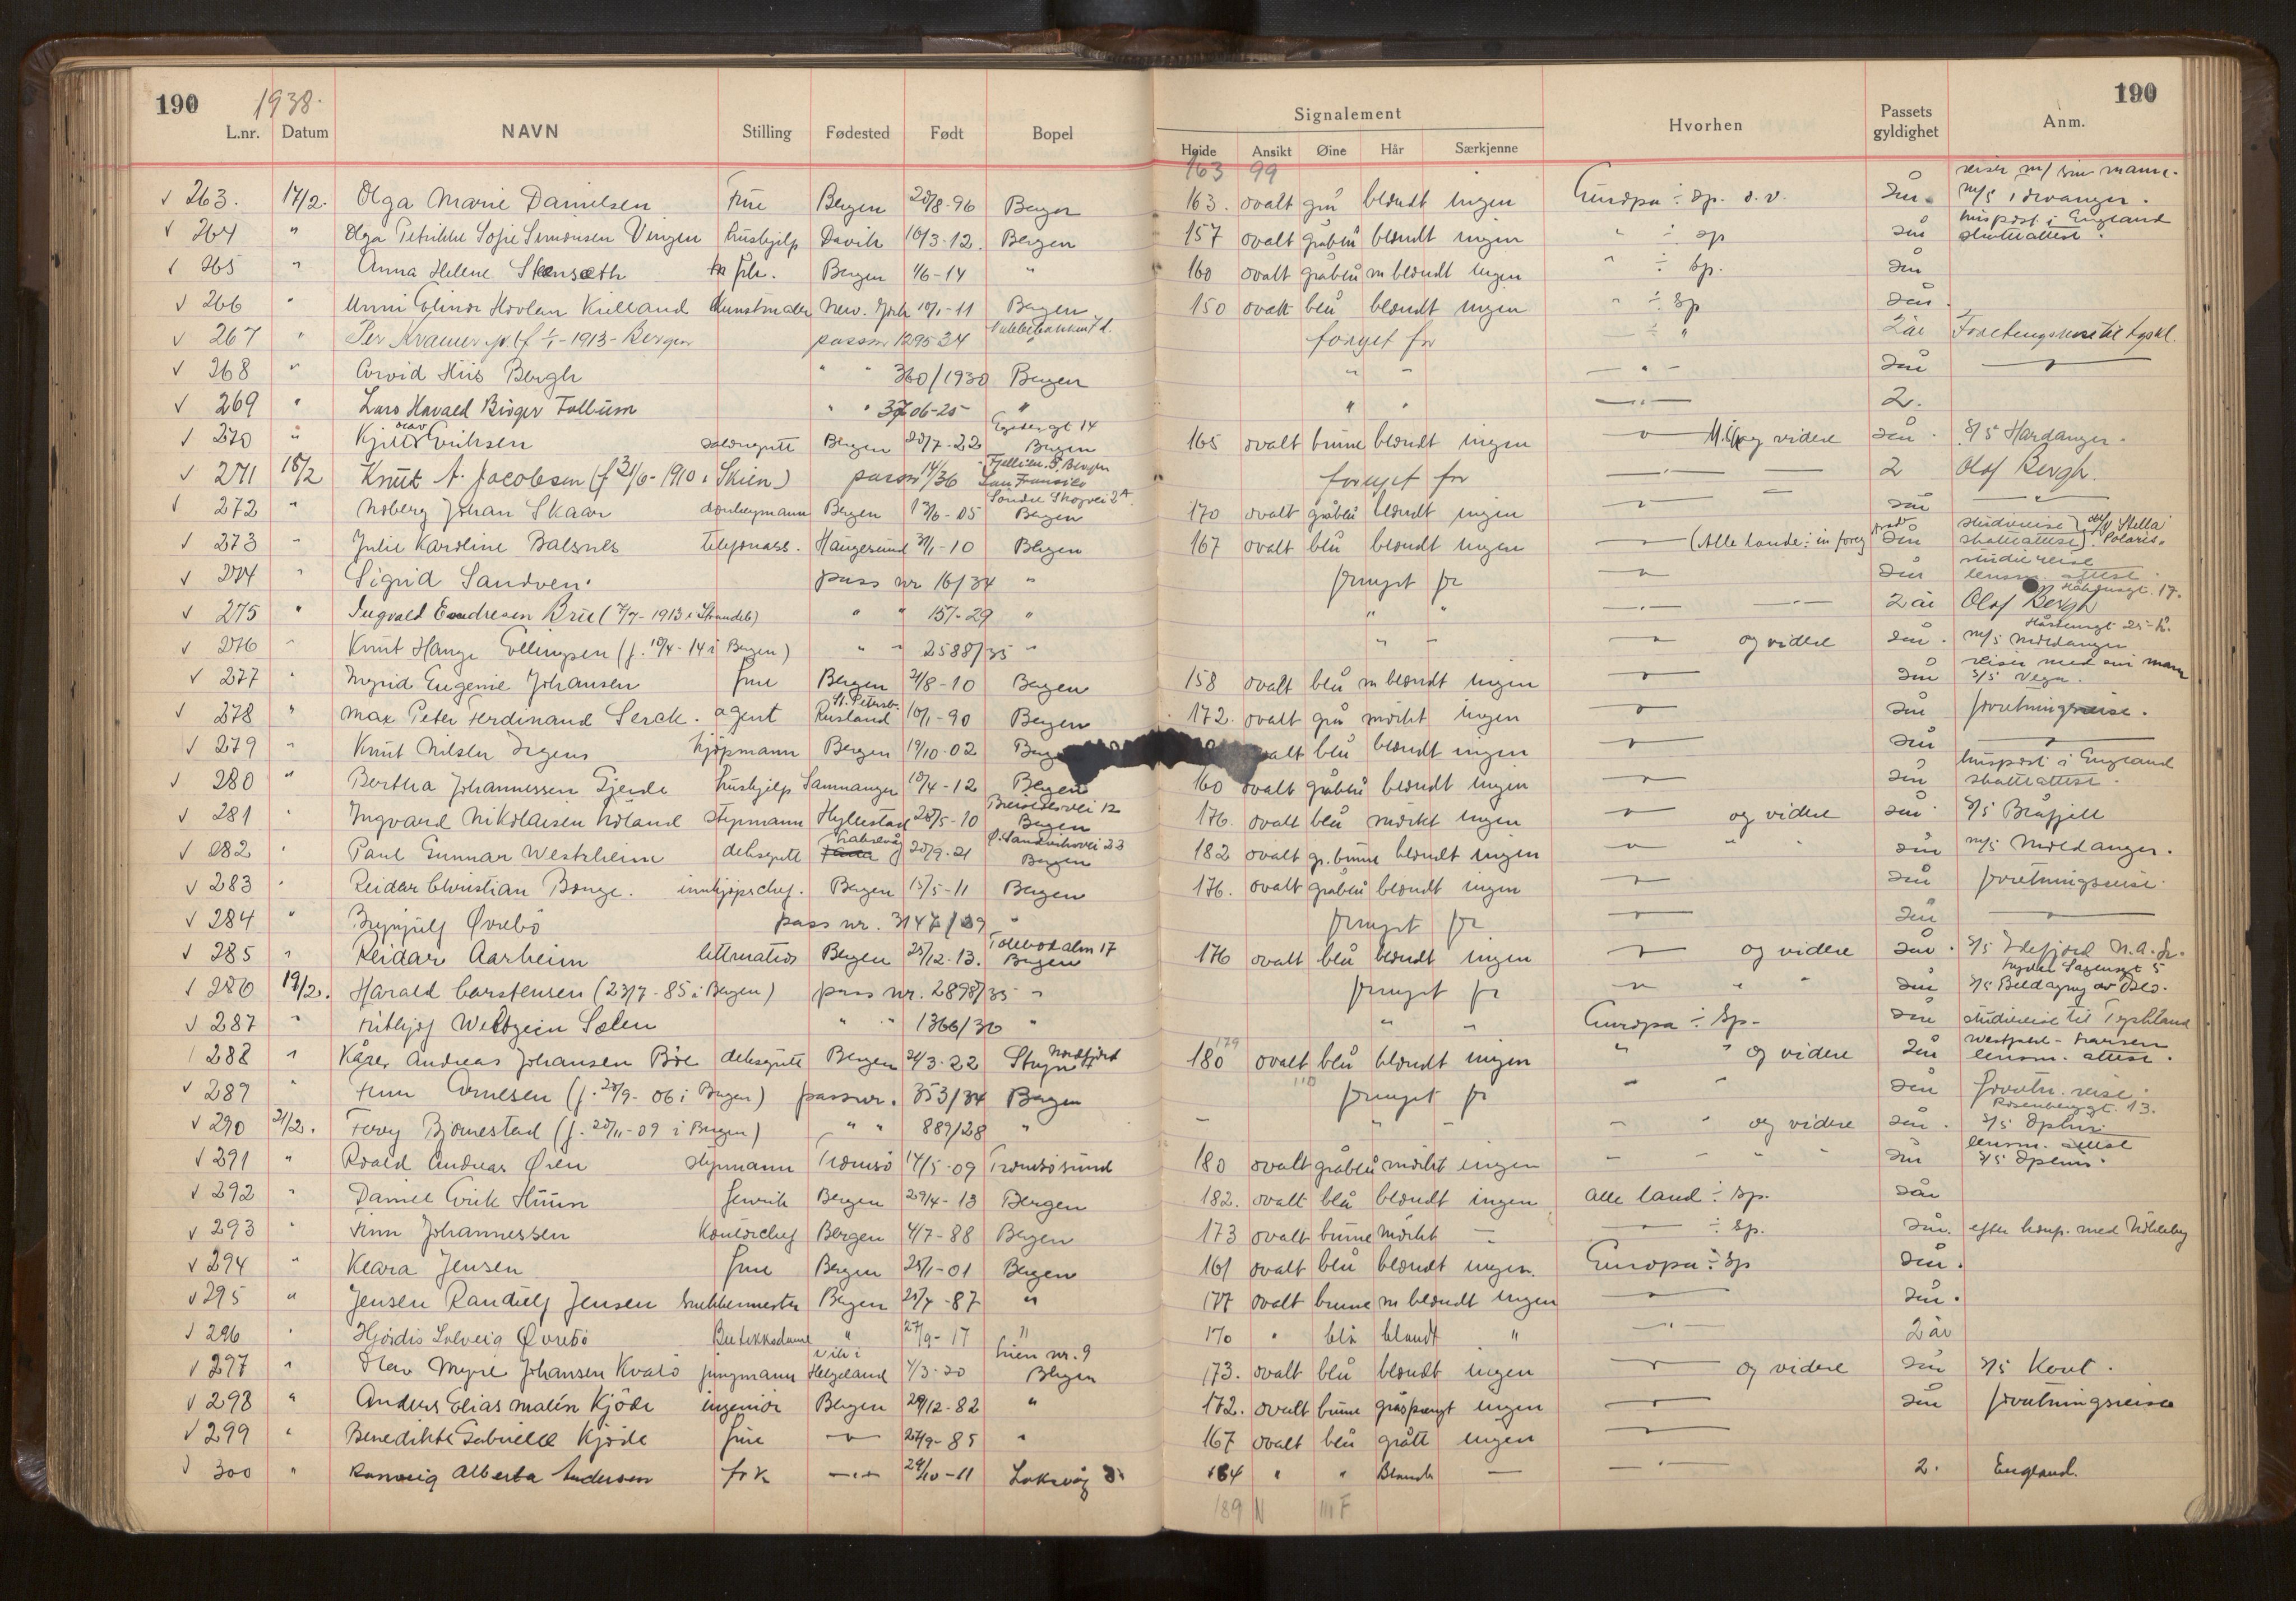 190 1938. 190
Signalement
L.nr. Datum NAVN Stilling Fødested Født Bopel Høide Ansikt Øine Hår Særkjenne Hvorhen Passets gyldighet Anm.
163 99 reiser m/ sin mann.
263. 17/2. Olga Marie Danielsen Frue Bergen 20/8-96 Bergen 163. ovalt grå blondt ingen Europa ÷ Sp. o.v. 2 år. m/s
264 " Olga Petrikke Sofie Simonsen Vingen hushjelp Davik 16/3-12. Bergen 157 ovalt gråblå blondt ingen " ÷ Sp 2 år huspost i England skatteattest.
265 " Anna Helene frk. Bergen 1/6-14 " 160 ovalt gråblå m blondt ingen " ÷ Sp. 2 år
266 " Unni Kielland Kunstmaler New. York 10/1-11 Bergen 150 ovalt blå blondt ingen " ÷ Sp 2 år.
267 " Per Kramer jr. (f 1/1-1913-Bergen passnr 1295-34 fornyet for — ÷ " 2 år Forretningsreise til Tyskl.
268 " Arvid Hiis Bergh " " 360/1930 Bergen " " — " — 2 år
269 " Lars Havald Birger Tollum " " 3706-25 " " " — " — 2.
270 " Kjell Olav Eriksen Bergen 20/7-22 Bergen 165 ovalt brune blondt ingen — og videre 2 år. S/S Hardanger.
271 18/2 Knut A. Jacobsen (f 21/6-1910 i Skien) passnr 14/36 San Fransisco fornyet for 2 Olaf Bergh.
272 " Noberg Johan Skaar donkeymann Bergen 13/6-05 Søndre Skogvei 2A Bergen 170 ovalt gråblå blondt ingen 2 år
273 " Julie Karoline Balsnes telefonass. Haugesund 30/1-10 Bergen 167 ovalt blå blondt ingen (Alle lande ÷ 2 år studiereise skatteattest } "Stella Polaris"
274 " Sigrid Sandven. pass nr 16/34 " fornyet for 2 år studiereise lensm. attest.
275 " Ingvald Endresen Brie ( 7/7-1913 i " " 157-29 " " " 2 år Olaf Bergh
276 " Knut Hauge Ellingsen (f. 10/4-14 i Bergen) " " 2588/35 " " " og videre 2 år. m/s Moldanger
277 " Ingrid Eugenie Johansen frue Bergen 21/8-10 Bergen 158 ovalt blå m blondt ingen 2 år reiser med sin mann S/S Vega.
278 " Max Peter Ferdinand Serck. agent St. Petersb. Rusland 10/1-90 Bergen 172. ovalt grå mørkt ingen 2 år forretningsreise.
279 " Knut Nilsen Irgens kjøpmann Bergen 19/10-02 ovalt blå blondt ingen 2 år
280 " Bertha Johannessen Gjerde hushjelp Samnanger 10/4-12 Bergen 160 ovalt gråblå blondt ingen 2 år huspost i England skatteattest.
281 " Ingvard Nikolaisen Nøland styrmann Hyllestad 20/5-10 Breistølsvei 12 Bergen 176. ovalt blå mørkt ingen og videre 2 år. S/S Blåfjell
282 " Paul Gunnar Westrheim deksgutt 20/9-21 Ø. Sandviksvei 23 Bergen 182 ovalt gr. brune blondt ingen " " 2 år m/s Moldanger.
283 " Reidar Christian Bonge. innkjøpschef. Bergen 15/5-11 Bergen 176. ovalt gråblå blondt ingen 2 år forretningsreise.
284 " Brynjulf Øvrebø pass nr. 3147/29 " fornyet for 2 år
285 " Reidar Aarheim lettmatros Bergen 25/12-13. Tollbodalm 17 Bergen 176 ovalt blå blondt ingen og videre 2 år. S/S Idefjord N.A.L.
286 19/2. Harald Carstensen (23/7-85 i Bergen) pass nr. 2898/35 " fornyet for " " 2 år S/S av Oslo.
287 " Fritjof Weltzein Sælen " " 1366/36 " " " Europa ÷ Sp. 2 år studiereise til Tyskland
288 " Kåre Andreas Johansen Böe deksgutt Bergen 24/3-22 Nordfjord Stryn 180 179 ovalt blå blondt ingen " " og videre 2 år Westfal-Larsen lensm. attest.
289 " Finn Arnesen (f. 20/9-06 i Bergen) passnr. 353/34 Bergen 110 fornyet for " " 2 år forretn. reise.
290 21/2. Ferry Bjørnestad (f. 20/11-09 i Bergen) " " 889/28 " — " — " og videre 2 år. Rosenberggt. 13. S/S
291 " Roald Andreas Øren styrmann Tromsø 14/5-09 Tromsøsund 180 ovalt gråblå mørkt ingen 2 år lensm. attest S/S
292 " Daniel Erik Huun fenrik Bergen 29/4-13 Bergen 182. ovalt blå blondt ingen Alle land ÷ Sp. 2 år
293 " Finn Johannessen Kontorchef Bergen 4/7-88 Bergen 173 ovalt brune mørkt — ÷ Sp. 2 år. efter konf. med
294 " Klara Jensen frue Bergen 25/1-01 Bergen 161 ovalt blå blondt ingen. Europa ÷ Sp 2 år.
295 " Jensen Randulf Jensen snekkermester Bergen 21/7-87 " 177 ovalt brune m blondt ingen 2 år.
296 " Hjørdis Solveig Øvrebø Butikksdame " 27/9-17 " 170 " blå blondt " — " — 2 år
297 " Olav Myre Johansen Kvalø jungmann Vik i Helgeland 4/3-20 Lien nr. 9 Bergen 173. ovalt blå blondt ingen og videre 2 år S/S Kent.
298 " Anders Elias Malin Kjøde ingeniør Bergen 29/12-82 " 172. ovalt brune gråsprengt ingen 2 år forretningsreise
299 " Benedikte Gabrielle Kjøde frue 27/9-85 " 167 ovalt blå grått ingen
300 " Ranveig Alberta Andersen frk — " — 24/10-11 Laksevåg 164 " " Blondt — — " — 2. England.
189 N III F